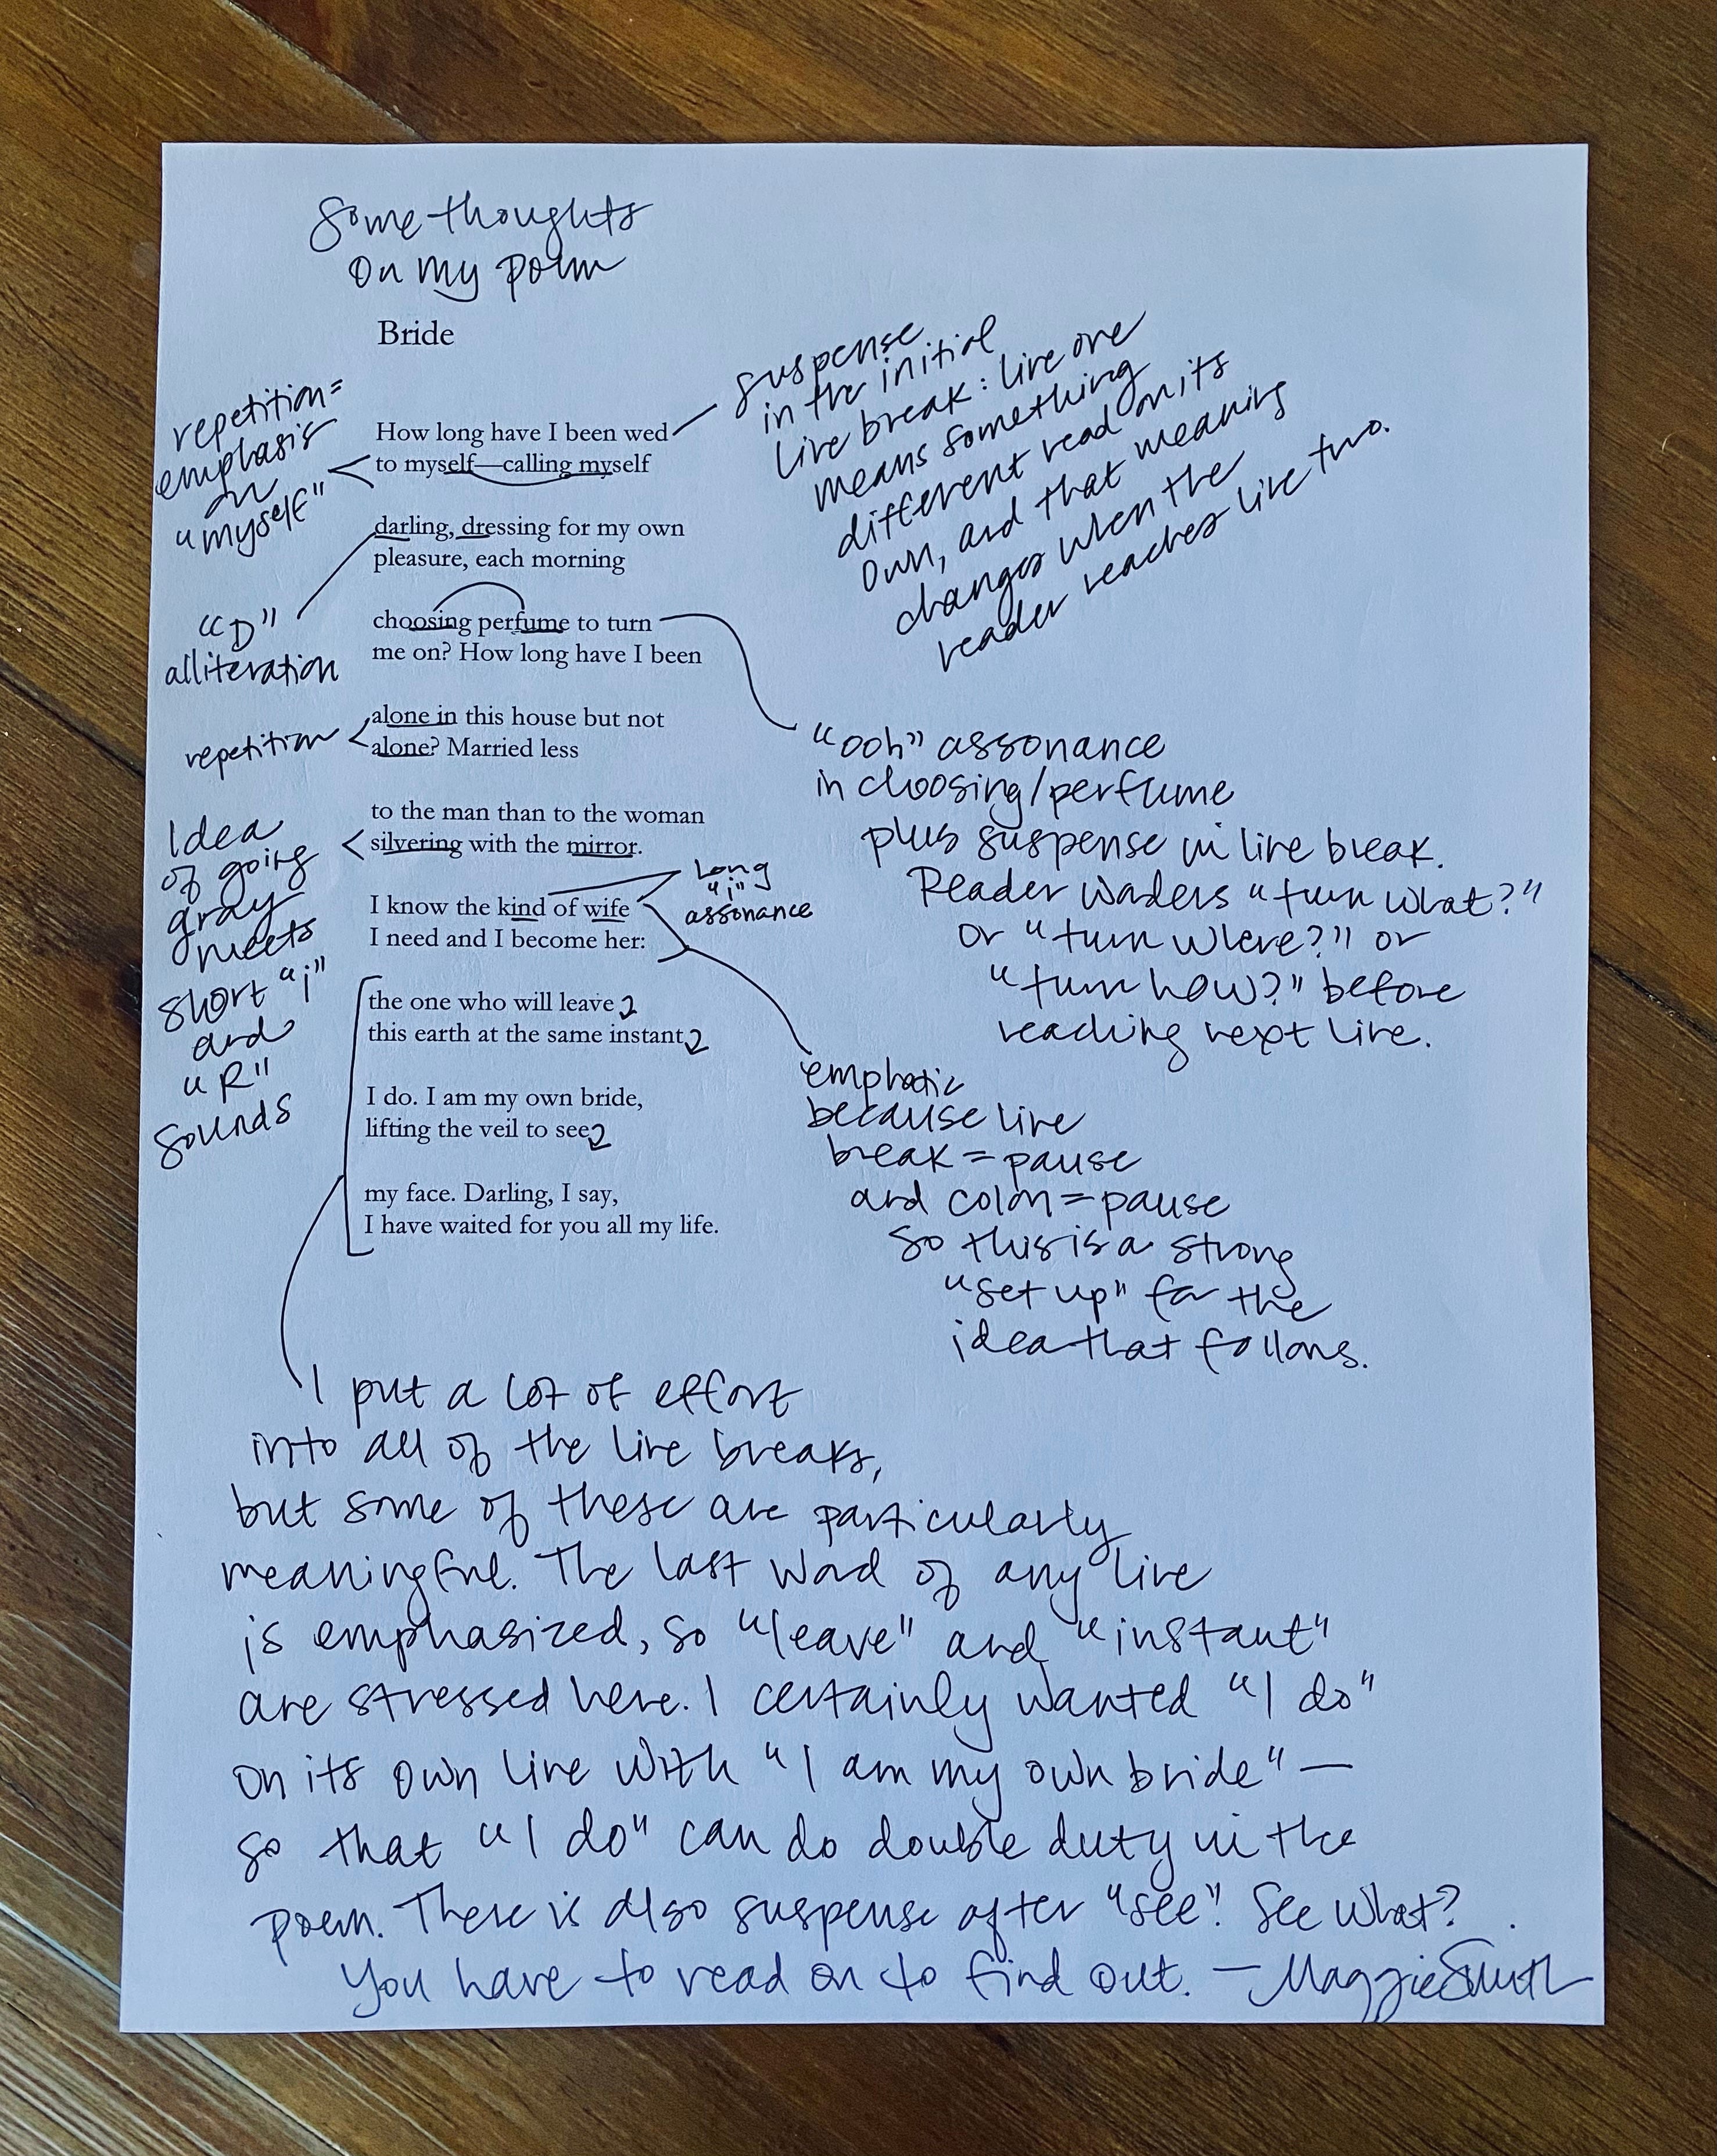 Some thoughts
on my poem
Bride
repetition=
emphasis
on
"myself"
How long have I been wed
to myself—calling myself
suspense
in the initial
line break: line one
means something
different read on its
own, and that meaning
changes when the
reader reaches line two.
darling, dressing for my own
pleasure, each morning
"D"
alliteration
choosing perfume to turn
me on? How long have I been
"ooh" assonance
in choosing/perfume
plus suspense in line break.
Reader wonders "turn what?"
or "turn where?" or
"turn how?" before
reaching next line.
repetition
alone in this house but not
alone? Married less
to the man than to the woman
silvering with the mirror.
Idea
of going
gray
meets
short "i"
and
"R"
sounds
I know the kind of wife
I need and I become her:
long
"i"
assonance
emphatic
because line
break = pause
and colon = pause
so this is a strong
"set up" for the
idea that follows.
the one who will leave
this earth at the same instant
I do. I am my own bride,
lifting the veil to see
my face. Darling, I say,
I have waited for you all my life.
I put a lot of effort
into all of the line breaks,
but some of these are particularly
meaningful. The last word of any line
is emphasized, so "leave" and "instant"
are stressed here. I certainly wanted "I do"
on its own line with "I am my own bride"—
so that "I do" can do double duty in the
poem. There is also suspense after "see". See what?
You have to read on to find out. —Maggie Smith